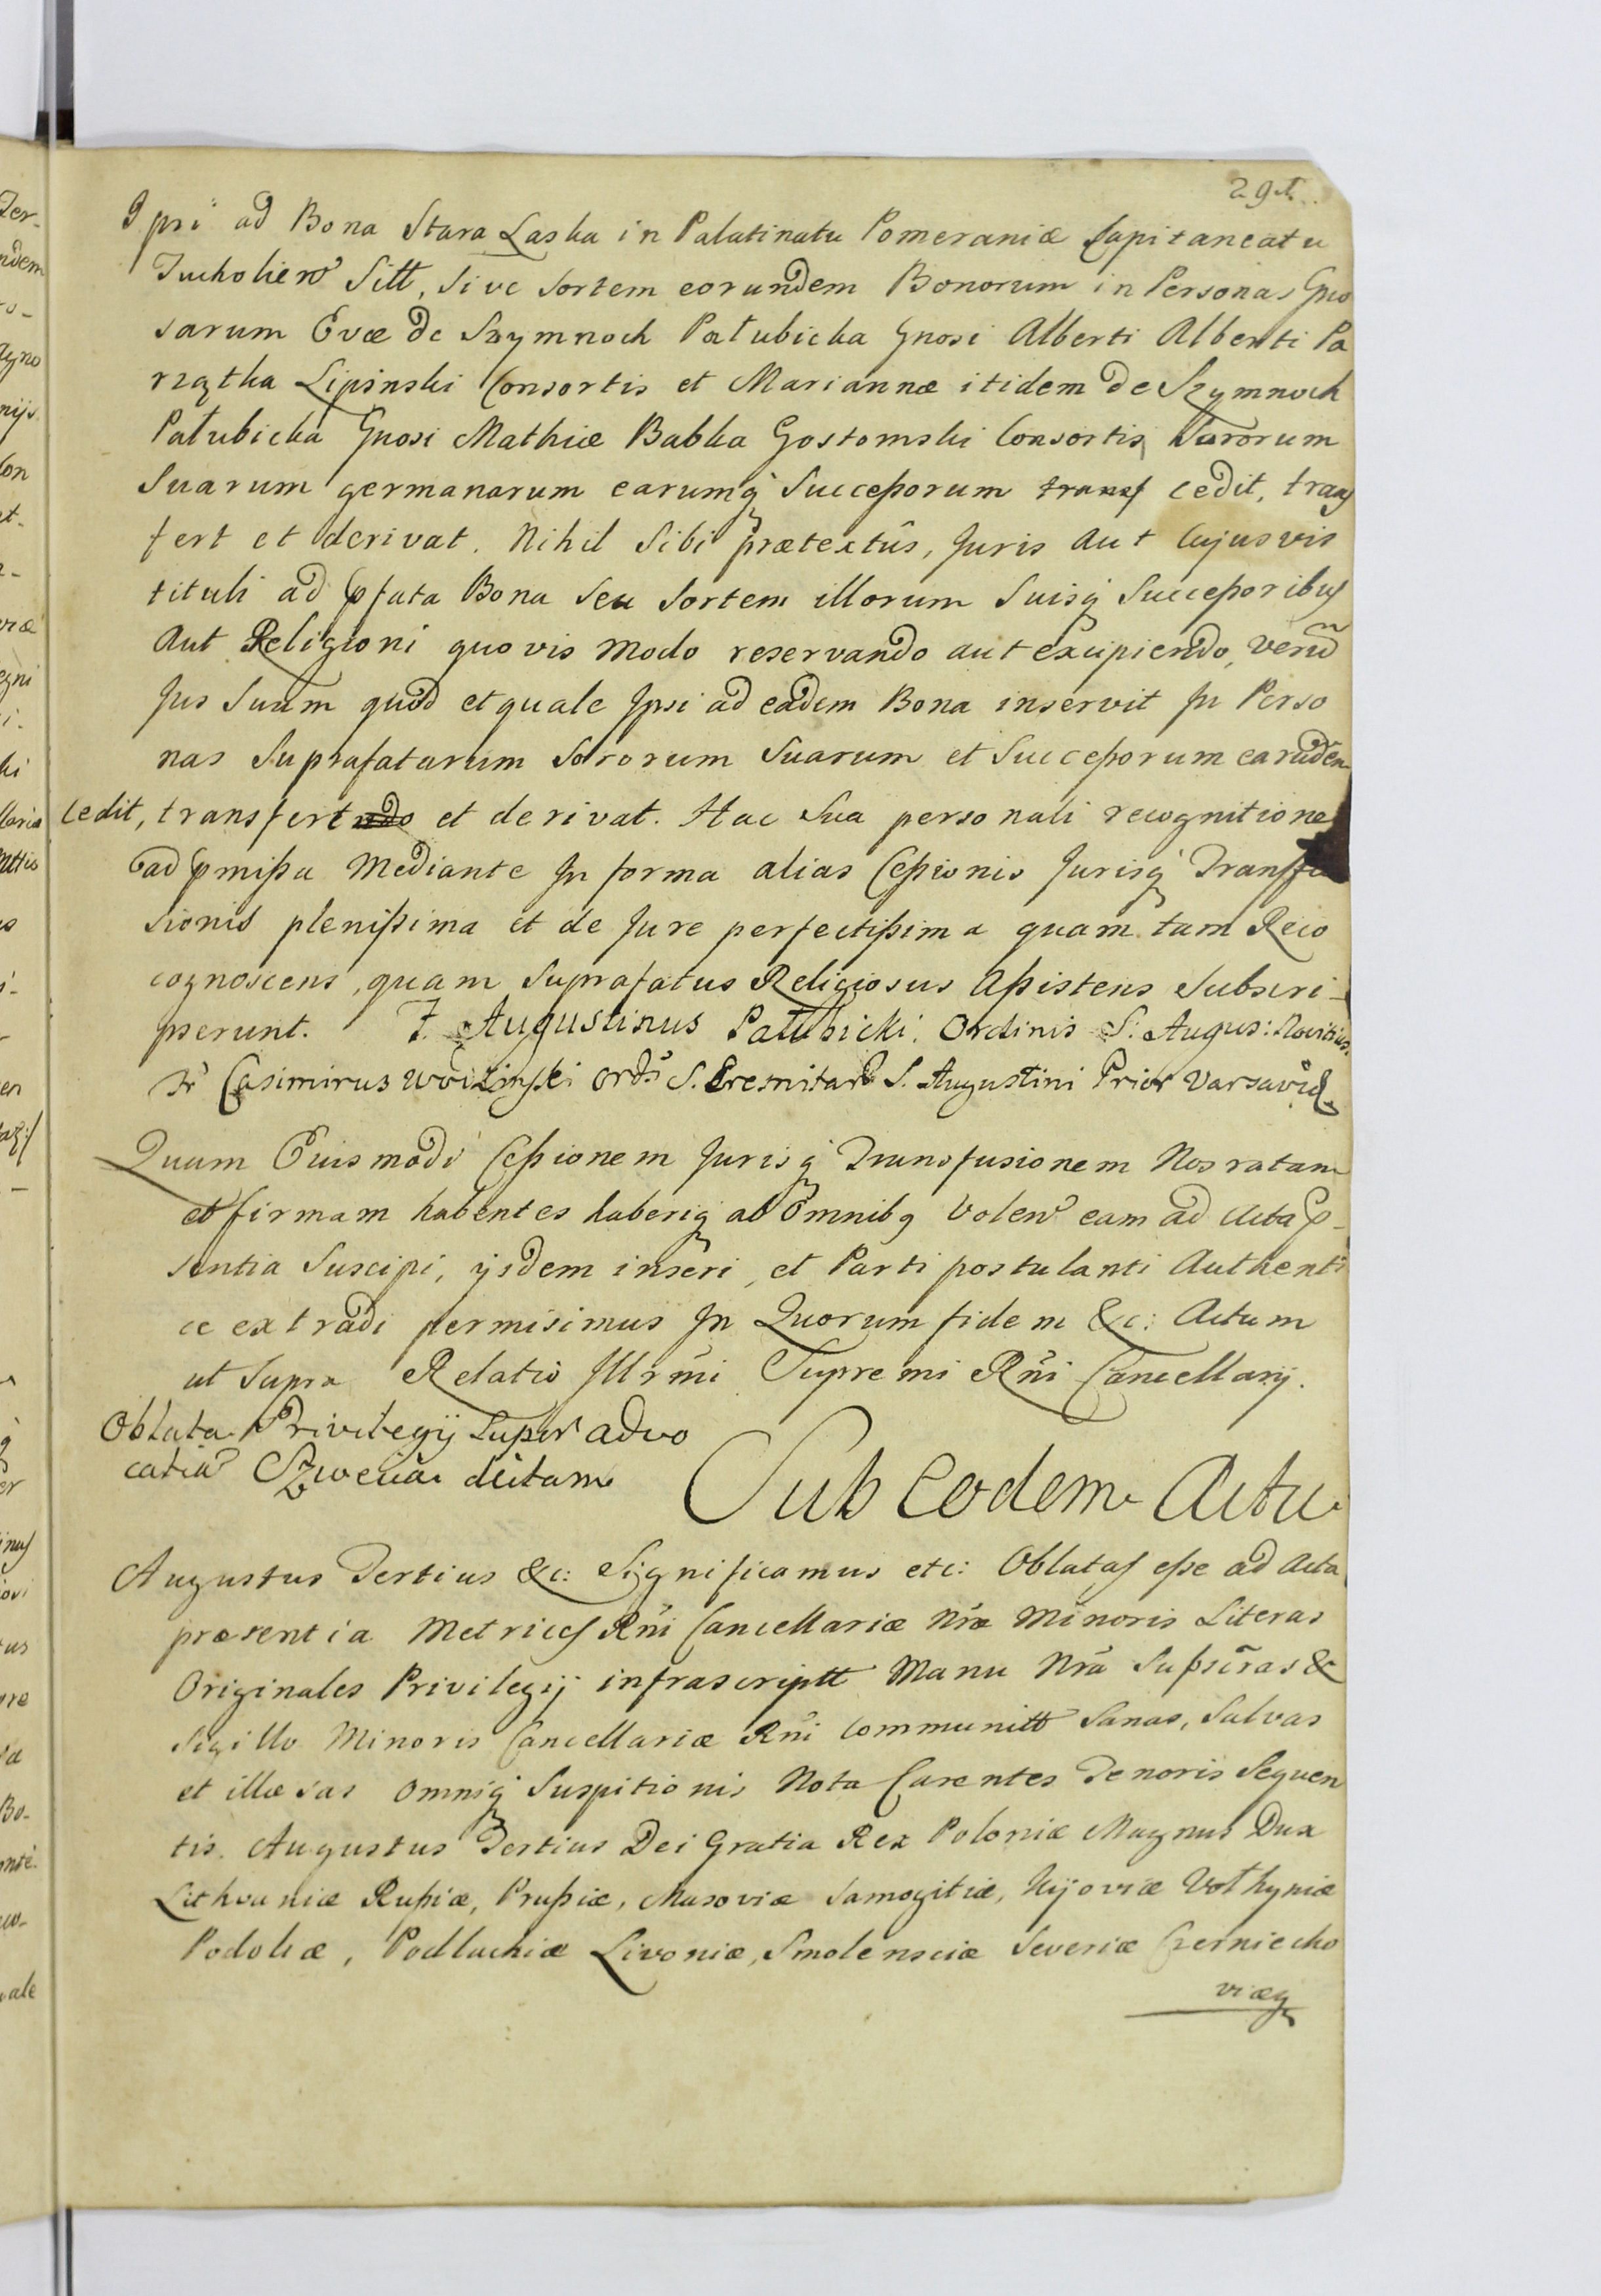 Ipsi ad Bona Stara Laska in Palatinatu Pomeraniæ Capitaneatu
Tucholien̄ Sitt, Sive Sortem eorundem Bonorum in Personas Gno
sarum Evæ de Szymnoch Pałubicka Gnosi Alberti Alberti Pa
rzątka Lipinski Consortis et Mariannæ itidem de Szymnoch
Pałubicka Gnosi Mathiæ Babka Gostomski Consortis, Sororum
Suarum germanarum earumq̨ Succeßorum transf cedit, transf
fert et derivat. Nihil Sibi prætextûs, Juris Aut Cujusvis
tituli ad pfata Bona Seu Sortem illorum Suisq̨ Succeßoribus
Aut Religioni quovis Modo reservando aut excipiendo, verũ
Jus Suum quod et quale Ipsi ad eadem Bona inservit In Perso
nas Suprafatarum Sororum Suarum et Succeßorum earũdem
Cedit, transfert et derivat. Hac Sua personali recognitione
ad pmißa Mediante In forma alias Ceßionis Jurisq̨ Transfu
sionis plenißima et de Jure perfectißima quam tam Reco
cognoscens, quam Suprafatus Religiosus Aßistens Subscri-
pserunt. F. Augustinus Pałubicki Ordinis S: Augus: Novitius.
Fr Casimirus Ordis S. Eremitarũ S. Augustini Prior Varsaviæ
Quam Euismodi Ceßionem Jurisq̨ Transfusionem Nos ratam
et firmam habentes haberiq̨ ab Omnibq Volen̄ eam ad Acta p-
sentia Suscipi, ijsdem inseri, et Parti postulanti Authenti
ce extradi permisimus In Quorum fidem &c: Actum
ut Supra Relatio Illrmi Supremi Rni Cancellarij.
Oblata Privilegij Super advo
catiã Szwecia dictam
Sub Eodem Actu
Augustus Tertius &c: Significamus etc: Oblatas eße ad Acta
præsentia Metrices Rni Cancellariæ Nræ Minoris Literas
Originales Privilegij infrascriptt Manu Nrã Subscras &
Sigillo Minoris Cancellariæ Rni Communitt Sanas, Salvas
et illæsas Omniq̨ Suspitionis Nota Carentes Tenoris Sequen
tis. Augustus Tertius Dei Gratia Rex Poloniæ Magnus Dux
Lithvaniæ Rußiæ, Prußiæ, Masoviæ Samogitiæ, Kijoviæ Vołhyniæ
Podoliæ, Podlachiæ Livoniæ, Smolensciæ Severiæ Czerniecho
viæq̨